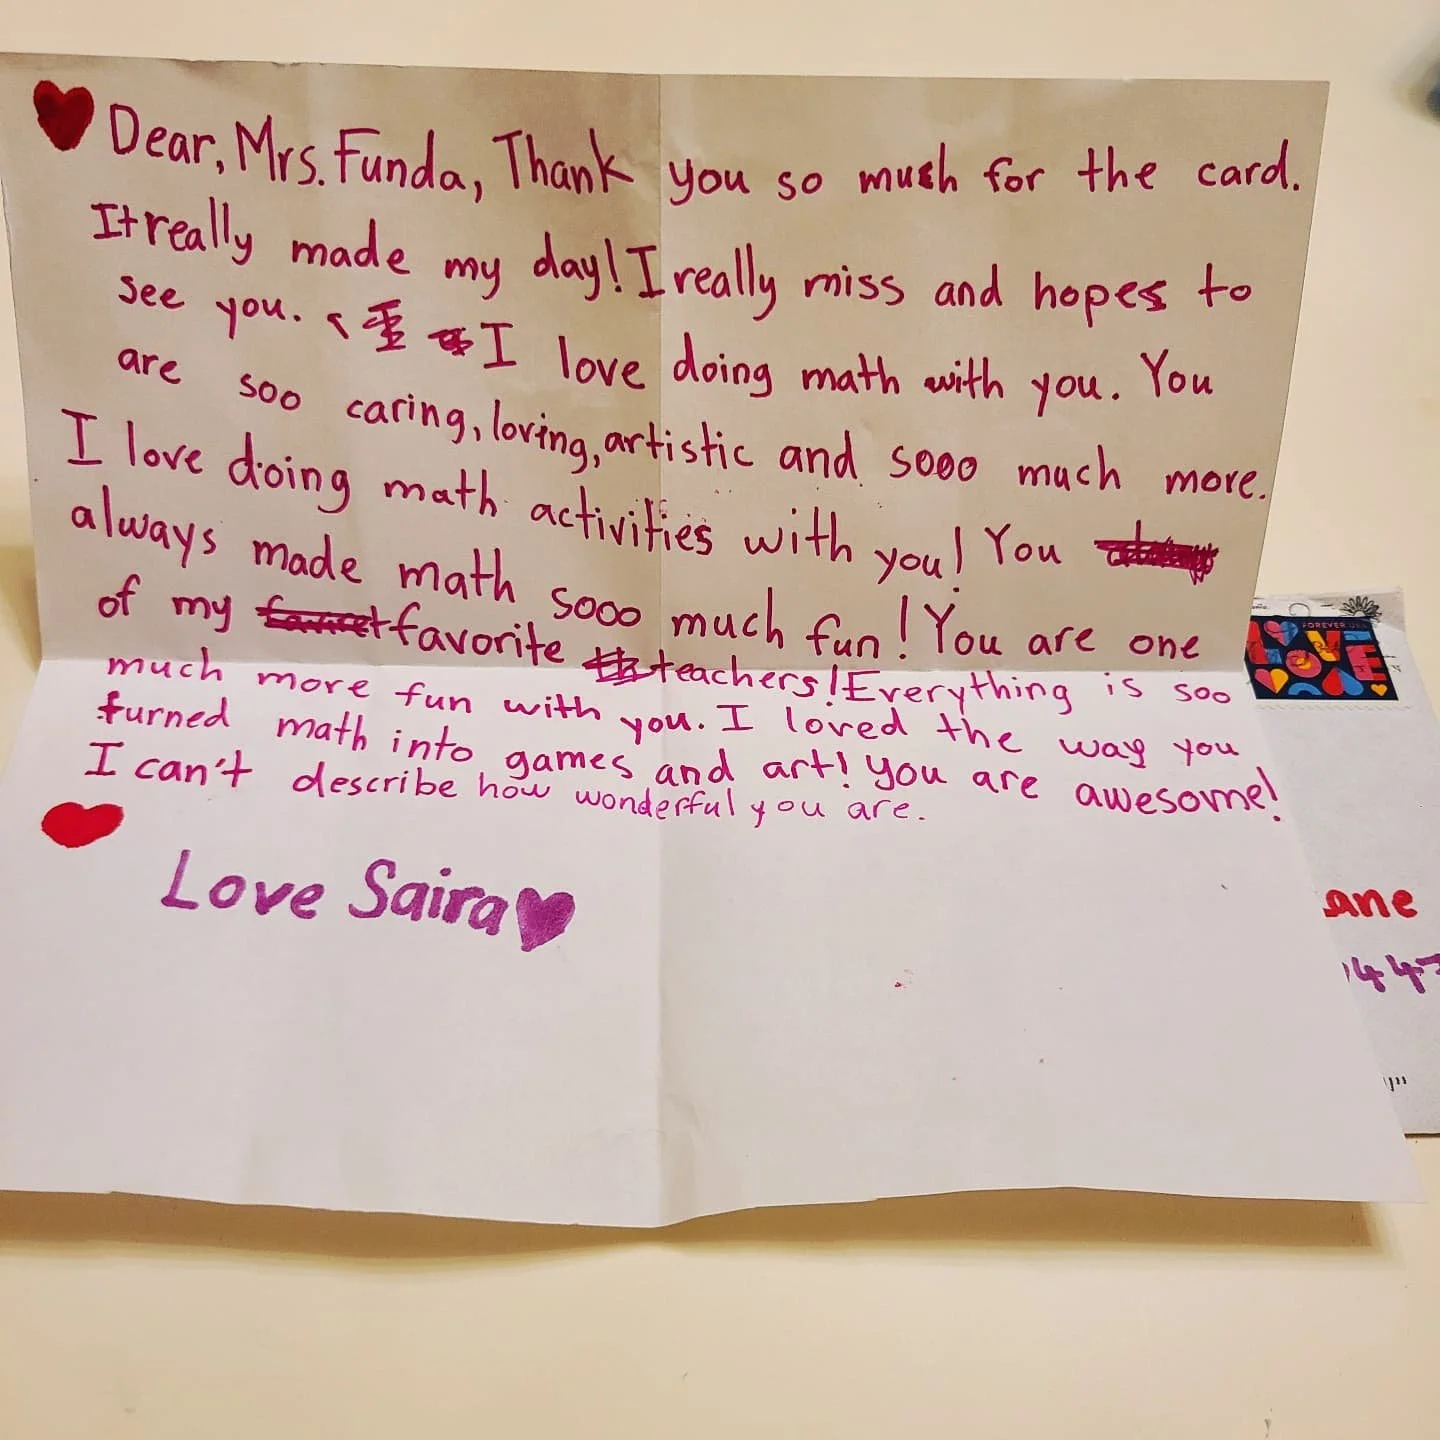 Dear, Mrs. Funda, Thank you so much for the card.
It really made my day! I really miss and hopes to
see you. I love doing math with you. You
are soo caring, loving, artistic and sooo much more.
I love doing math activities with you! You
always made math sooo much fun! You are one
of my favorite teachers! Everything is soo
much more fun with you. I loved the way you
turned math into games and art! You are awesome!
I can't describe how wonderful you are.
Love Saira
FOREVER USA
LOVE
ane
447